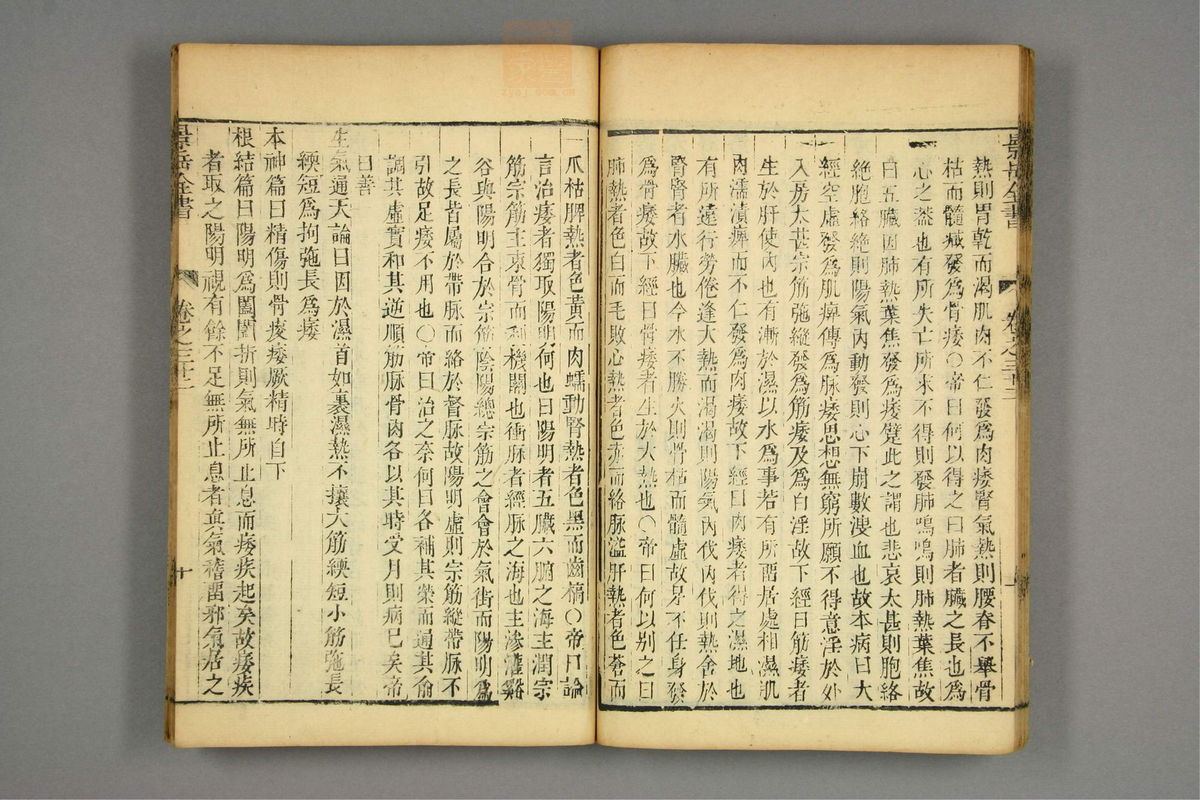 景岳全書
卷之三十二
熱則胃乾而渴肌肉不仁發爲肉痿腎氣熱則腰脊不舉骨
枯而髓減發爲骨痿○帝曰何以得之曰肺者臟之長也爲
心之蓋也有所失亡所求不得則發肺鳴鳴則肺熱葉焦故
曰五臟因肺熱葉焦發爲痿躄此之謂也悲哀太甚則胞絡
絕胞絡絕則陽氣內動發則心下崩數溲血也故本病曰大
經空虛發爲肌痺傳爲脉痿思想無窮所願不得意淫於外
入房太甚宗筋弛縱發爲筋痿及爲白淫故下經曰筋痿者
生於肝使內也有漸於濕以水爲事若有所畱居處相濕肌
肉濡漬痺而不仁發爲肉痿故下經曰肉痿者得之濕地也
有所遠行勞倦逢大熱而渴渴則陽氣內伐內伐則熱舍於
腎腎者水臟也今水不勝火則骨枯而髓虛故足不任身發
爲骨痿故下經曰骨痿者生於大熱也○帝曰何以别之曰
肺熱者色白而毛敗心熱者色赤而絡脉溢肝熱者色蒼而
爪枯脾熱者色黃而肉蠕動腎熱者色黑而齒槁○帝曰論
言治痿者獨取陽明何也曰陽明者五臟六腑之海主潤宗
筋宗筋主束骨而利機關也衝脉者經脉之海也主滲灌谿
谷與陽明合於宗筋陰陽總宗筋之會會於氣街而陽明爲
之長皆屬於帶脉而絡於督脉故陽明虛則宗筋縱帶脉不
引故足痿不用也○帝曰治之奈何曰各補其滎而通其俞
調其虛實和其逆順筋脉骨肉各以其時受月則病已矣帝
曰善
生氣通天論曰因於濕首如裹濕熱不攘大筋緛短小筋弛長
緛短爲拘弛長爲痿
本神篇曰精傷則骨痠痿厥精時自下
根結篇曰陽明爲闔闔折則氣無所止息而痿疾起矣故痿疾
者取之陽明視有餘不足無所止息者眞氣稽畱邪氣居之
景岳全書
卷之三十二
十